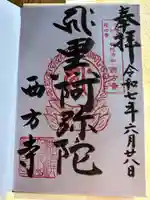 奉拝
令和七年六月廿八日
飛里阿弥陀
西方寺